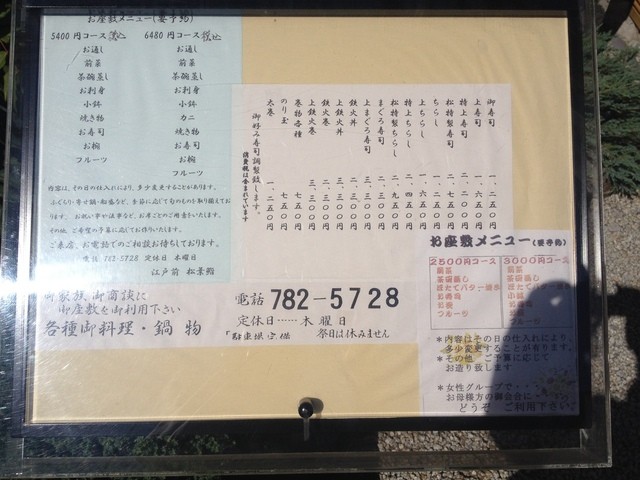 お座敷メニュー(要予約)
5400円コース 税込
お通し
前菜
茶碗蒸し
お刺身
小鉢
焼き物
お寿司
お椀
フルーツ
6480円コース 税込
お通し
前菜
茶碗蒸し
お刺身
小鉢
カニ
焼き物
お寿司
お椀
フルーツ
内容は、その日の仕入れにより、多少変更することがあります。
ふぐちり・寄せ鍋・船盛など、季節に応じてなのものを取り揃えてお
ります。お祝い事や法事など、お席ごとのご用意をいたします。
その他、ご希望の予算に応じてお作りいたします。
ご来店、お電話でのご相談お待ちしております。
電話 782-5728 定休日 木曜日
江戸前 松葉鮨
御寿司
上寿司
特上寿司
松特製寿司
ちらし
上ちらし
特上ちらし
松特製ちらし
まぐろ寿司
上まぐろ寿司
鉄火丼
上鉄火丼
鉄火巻
上鉄火巻
巻物各種
のり玉
太巻 一、二五〇円
御好み寿司調製致します。
消費税は含まれています
ご家族、御商談に
御座敷を御利用下さい
各種御料理・鍋物
電話 782-5728
定休日……木曜日
「駐車場完備 祭日は休みません
お座敷メニュー(要予約)
2500円コース
前菜
茶碗蒸し
ほたてバター焼き
お寿司
お椀
フルーツ
3000円コース
前菜
茶碗蒸し
ほたてバター焼き
小鉢
お寿司
お椀
フルーツ
*内容はその日の仕入により、
多少変更することが有ります。
*その他 ご予算に応じて
お造り致します
*女性グループで・・
お母様方の御会合に・・
どうぞ ご利用下さい。